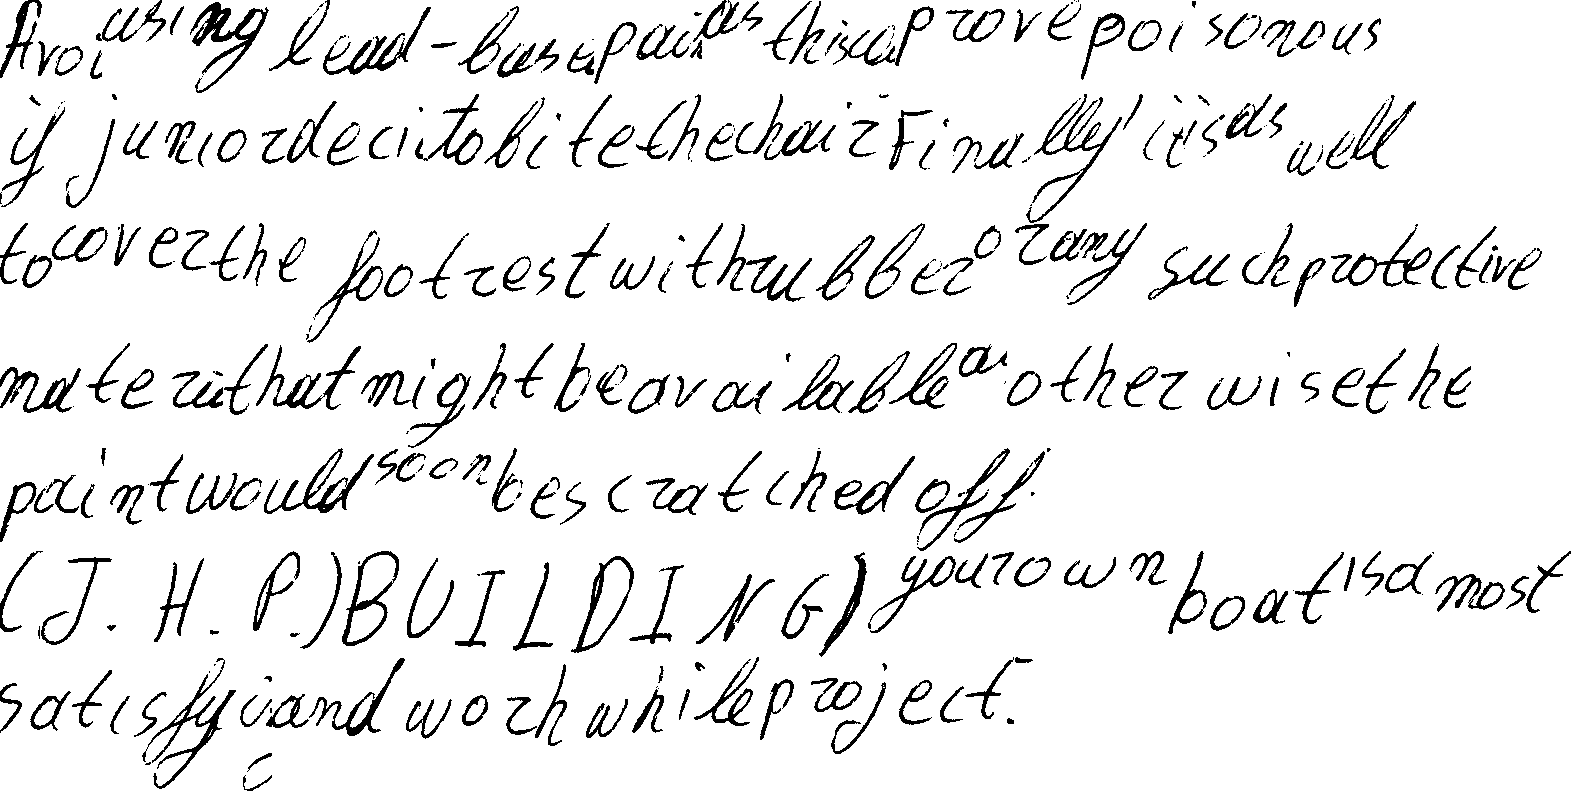 Avoi using lead-base pain as this ca prove poisonous
if junior deci to bite the chair Finally it is as well
to cover the footrest with rubber or any such protective
materi that might be available as otherwise the
paint would soon be scratched off.
(J. H. P.) BUILDING) your own boat is a most
satisfyi and worhwhile project.